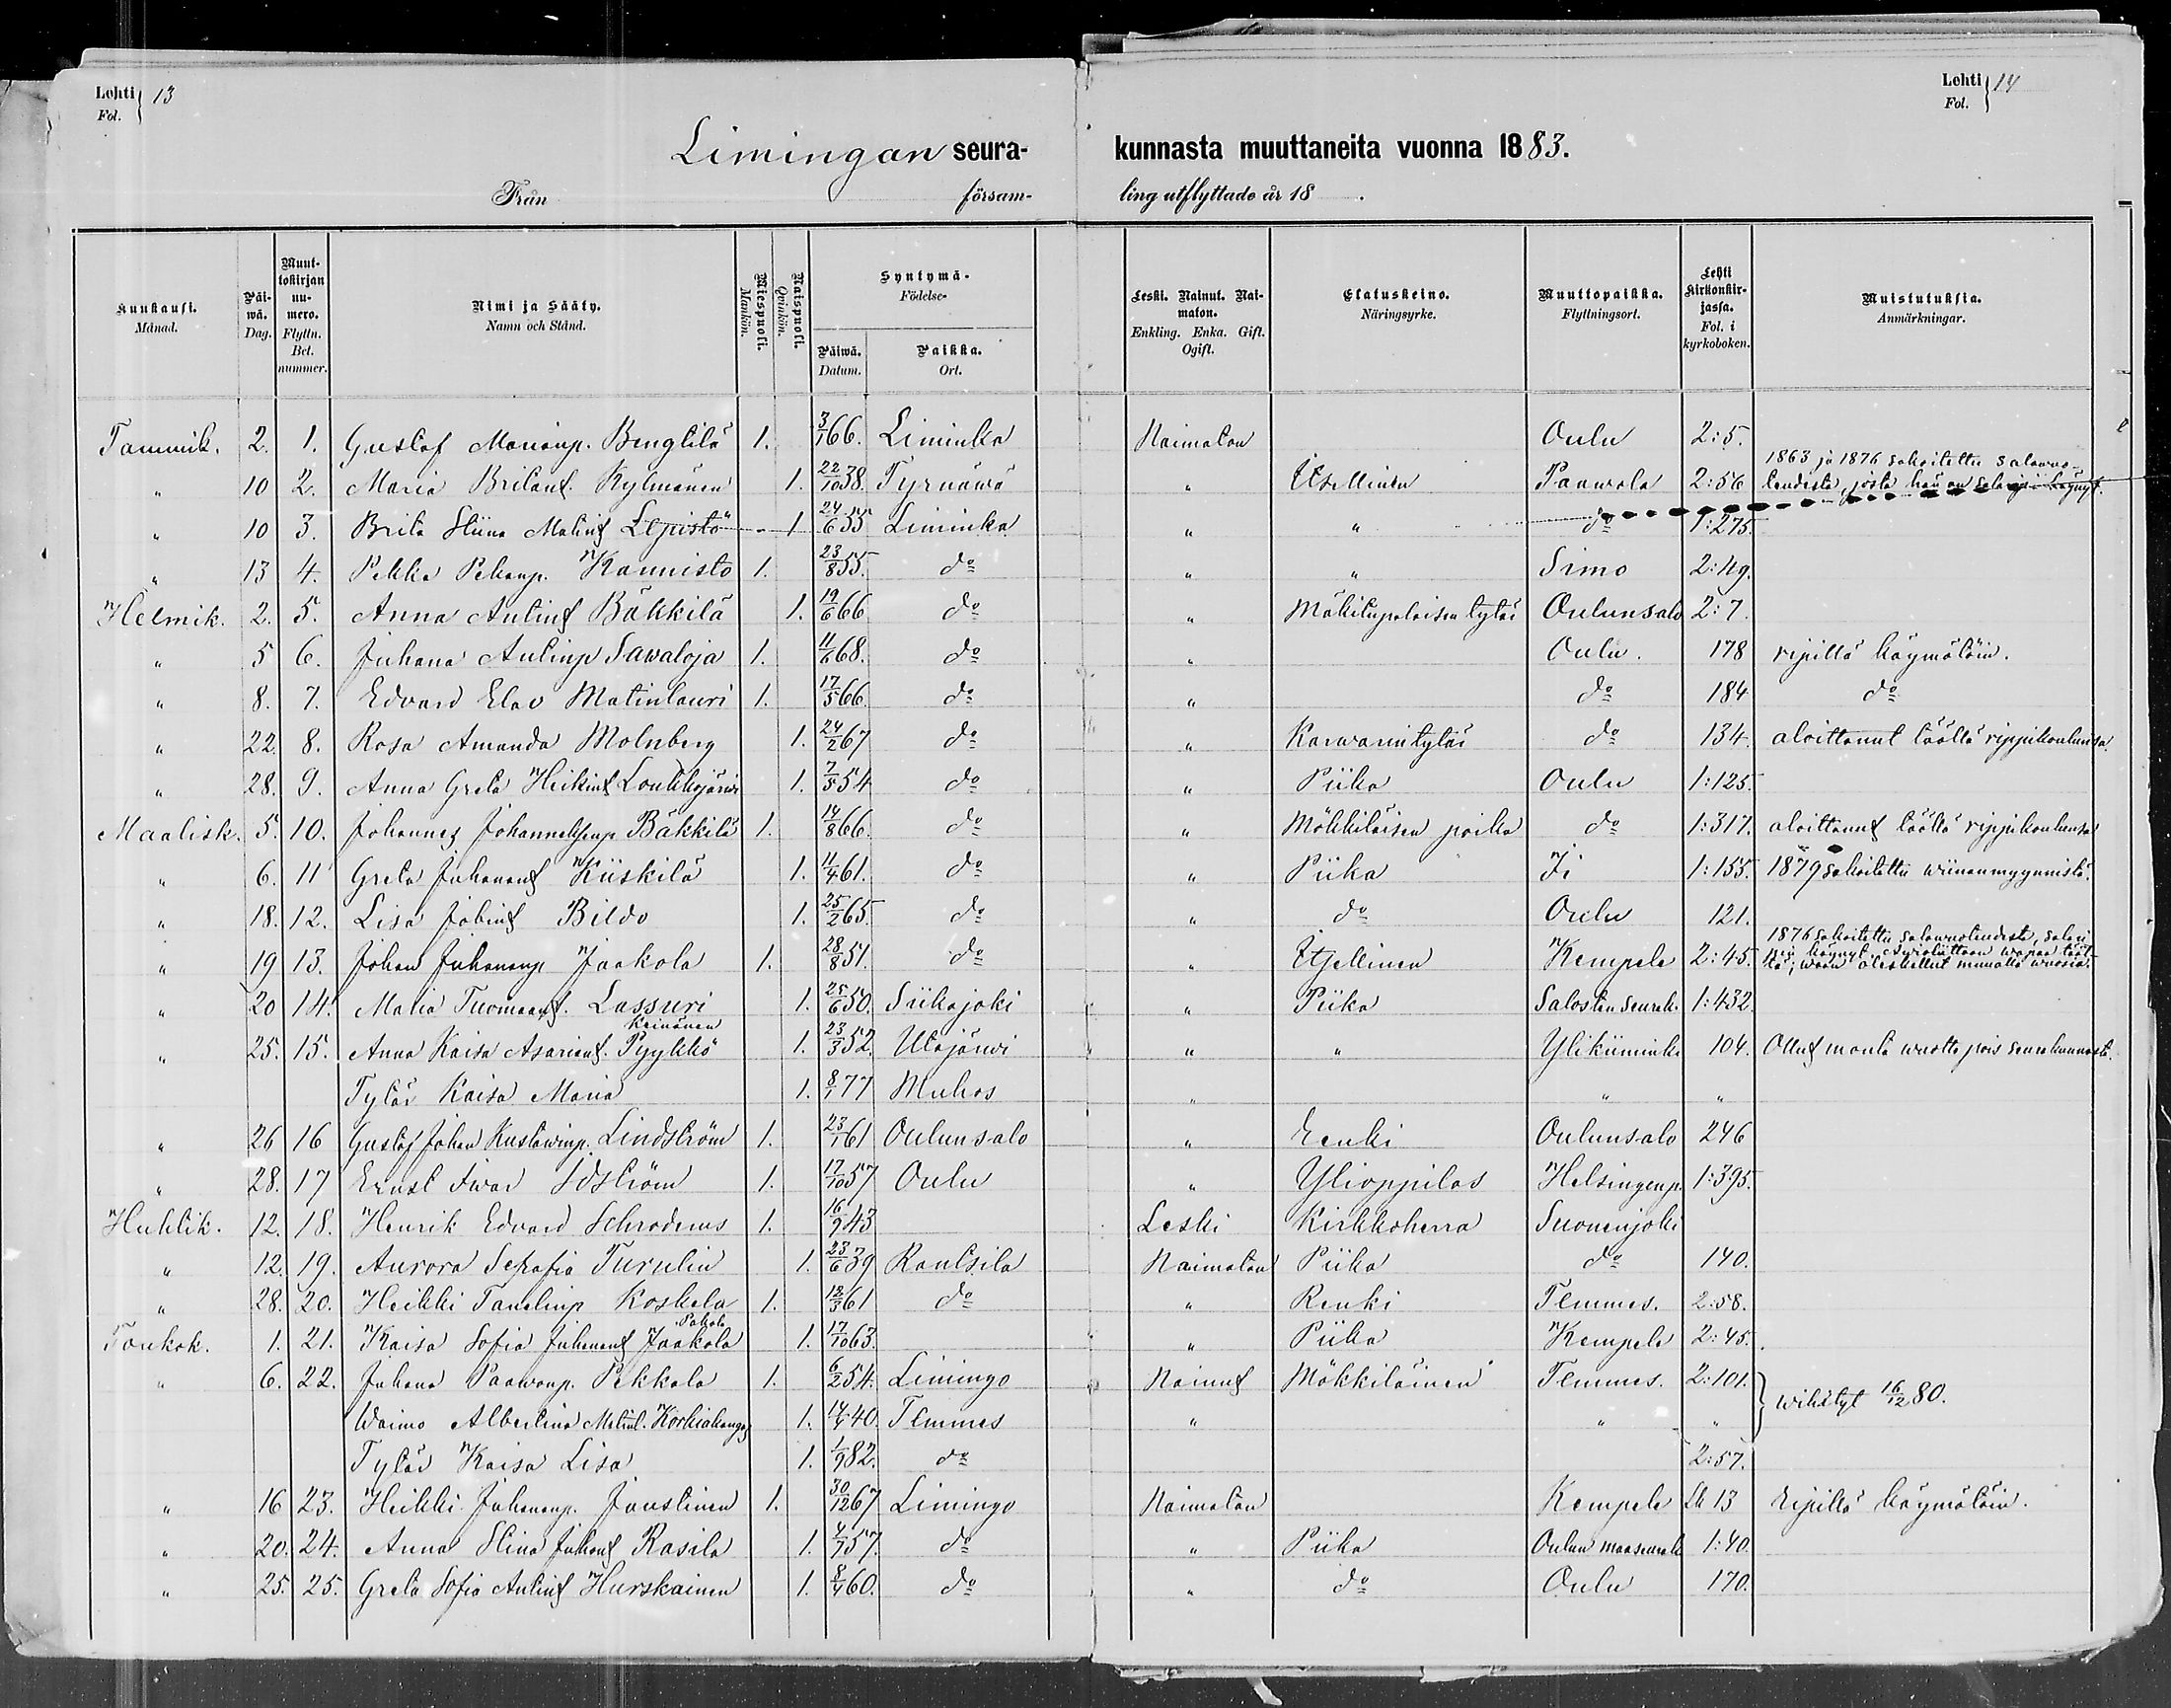 Lehti Fol. } 13
Lehti Fol. } 14
Limingan seura- kunnasta muuttaneita vuonna 1883.
Från försam- ling utflyttade år 18 .
Kuukausi. Månad. | Päiwä. Dag. | Muuttokirjan numero. Flyttn. Bet. nummer. | Nimi ja Sääty. Namn och Stånd. | Miespuoli. Mankön. | Naispuoli. Qvinkön. | Syntymä- Födelse- Päiwä. Datum. | Paikka. Ort. | Leski. Nainut. Naimaton. Enkling. Enka. Gift. Ogift. | Elatuskeino. Näringsyrke. | Muuttopaikka. Flyttningsort. | Lehti Kirkonkirjassa. Fol. i kyrkoboken. | Muistutuksia. Anmärkningar.
Tammik. 2. 1. Gustaf Marianp. Bengtilä 1. 3/1 66. Liminka Naimaton Oulu 2:5.
" 10 2. Maria Britant. Kylmänen 1. 22/10 38. Tyrnäwä " Itsellinen Paawola 2:56 1863 ja 1876 sakoitettu salawuo-
teudesta, josta hän on
" 10 3. Brita Stina Matint Lepistö 1 24/6 55 Liminka " " do 1:275.
" 13 4. Pekka Pekanp. Kannisto 1. 23/8 55. do " " Simo 2:119.
Helmik. 2. 5. Anna Antint Bäkkilä 1. 19/6 66 do " Mäkitupalaisen tytär Oulunsalo 2:7.
" 5 6. Juhana Antinp Sawaloja 1. 11/6 68. do " Oulu. 178 ripillä käymätöin.
" 8. 7. Edvard Elav Matinlauri 1. 17/5 66. do " do 184 do
" 22. 8. Rosa Amanda Molnberg 1. 24/2 67 do " Karwarin tytär do 134. aloittanut täällä rippikoulunsa
" 28. 9. Anna Greta Heikint Loukkojärwi 1. 7/5 54 do " Piika Oulu 1:125.
Maalisk. 5. 10. Johannes Johanneksenp Bäkkilä 1. 14/8 66. do " Mökkiläisen poika do 1:317. aloittanut täällä rippikoulunsa
" 6. 11 Greta Juhanant Kiiskilä 1. 11/4 61. do " Piika Ii 1:155. 1879 sakoitettu wiinanmyynnistä.
" 18. 12. Lisa Jobint Bildo 1. 25/2 65. do " do Oulu 121.
" 19 13. Johan Juhananp Jaakola 1. 28/8 51. do " Itsellinen Kempele 2:45. 1876 sakoitettu salawuoteudesta, salari-
piä käynyt. Awioliittoon wapaa tääl-
tä, waan oleskellut muualla wuosia.
" 20 14. Maria Tuomaant. Lassuri 1. 25/6 50. Siikajoki " Piika Salosten seurak. 1:432.
Keinänen
" 25. 15. Anna Kaisa Asariant. Pyykkö 1. 23/3 52. Utajärwi " " Ylikiiminki 104. Ollut monta wuotta pois seurakunnasta.
Tytär Kaisa Maria 1. 8/1 77 Muhos " " "
" 26 16 Gustaf Johan Kustawinp. Lindström 1. 23/1 61 Oulunsalo " Renki Oulunsalo 246
" 28. 17 Ernst Iwar Idström 1. 17/10 57 Oulu " Ylioppilas Helsingenp. 1:395.
Huhtik. 12. 18. Henrik Edvard Schroderus 1. 16/9 43 Leski Kirkkoherra Suonenjoki
" 12. 19. Aurora Serafia Turulin 1. 23/6 39 Rantsila Naimaton Piika do 140.
" 28. 20. Heikki Tanelinp Koskela 1. 12/3 61 do " Renki Temmes. 2:58.
Toukok. 1. 21. Kaisa Sofia Juhanant Jaakola 1. 17/10 63. " Piika Kempele 2:45.
" 6. 22. Juhana Paawonp. Pekkala 1. 6/2 54. Limingo Nainut Mökkiläinen Temmes. 2:101. } wihityt 16/12 80.
Waimo Albertina Matint. Korkiakangas 1. 14/4 40. Temmes " " "
Tytär Kaisa Lisa 1. 1/9 82. do 2:57.
" 16 23. Heikki Juhananp. Jaustinen 1. 30/12 67 Limingo Naimaton Kempele Lk 13 Ripillä käymätöin.
" 20. 24. Anna Stina Juhant Rasila 1. 4/7 57. do " Piika Oulun maaseurak 1:40.
" 25. 25. Greta Sofia Antint Hurskainen 1. 8/4 60. do " do Oulu 170.